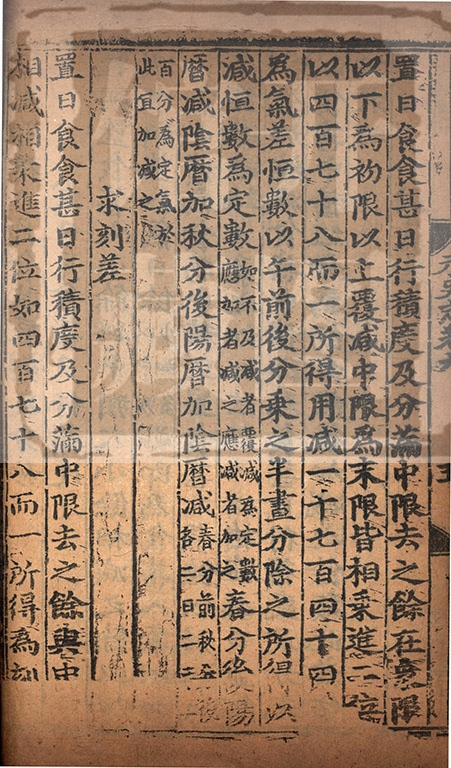 置日食食甚日行積度及分滿中限去之餘在象限
以下為初限以上覆減中限為末限皆相乘進二位
以四百七十八而一所得用減一千七百四十四
為氣差恒數以午前後分乘之半晝分除之所得以
減恒數為定數如不及減者覆減為定數應加者減之應減者加之春分後陽
曆減陰曆加秋分後陽曆加陰曆減春分前秋分後各二日二千
百分為定氣於此宜加減之
求刻差
置日食食甚日行積度及分滿中限去之餘與中
相減相乘進二位如四百七十八而一所得為刻